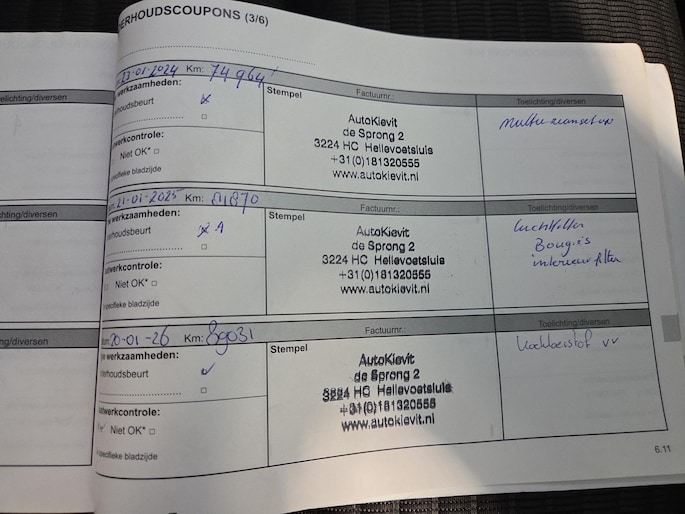 ERHOUDSCOUPONS (3/6)
23-01-2024 Km: 74964
Factuurnr.:
Toelichting/diversen
elichting/diversen
werkzaamheden:
Stempel
houdsbeurt
AutoKievit
de Sprong 2
3224 HC Hellevoetsluis
+31(0)181320555
www.autokievit.nl
werkcontrole:
Niet OK*
specifieke bladzijde
21-01-2025 Km: 81870
Factuurnr.:
Toelichting/diversen
hting/diversen
werkzaamheden:
Stempel
rhoudsbeurt
A
AutoKievit
de Sprong 2
3224 HC Hellevoetsluis
+31(0)181320555
www.autokievit.nl
luchtfilter
Bougies
interieurfilter
twerkcontrole:
Niet OK*
specifieke bladzijde
20-01-26 Km: 89031
Factuurnr.:
Toelichting/diversen
ng/diversen
werkzaamheden:
Stempel
erhoudsbeurt
AutoKievit
de Sprong 2
3224 HC Hellevoetsluis
+31(0)181320555
www.autokievit.nl
vv
twerkcontrole:
Niet OK*
specifieke bladzijde
6.11